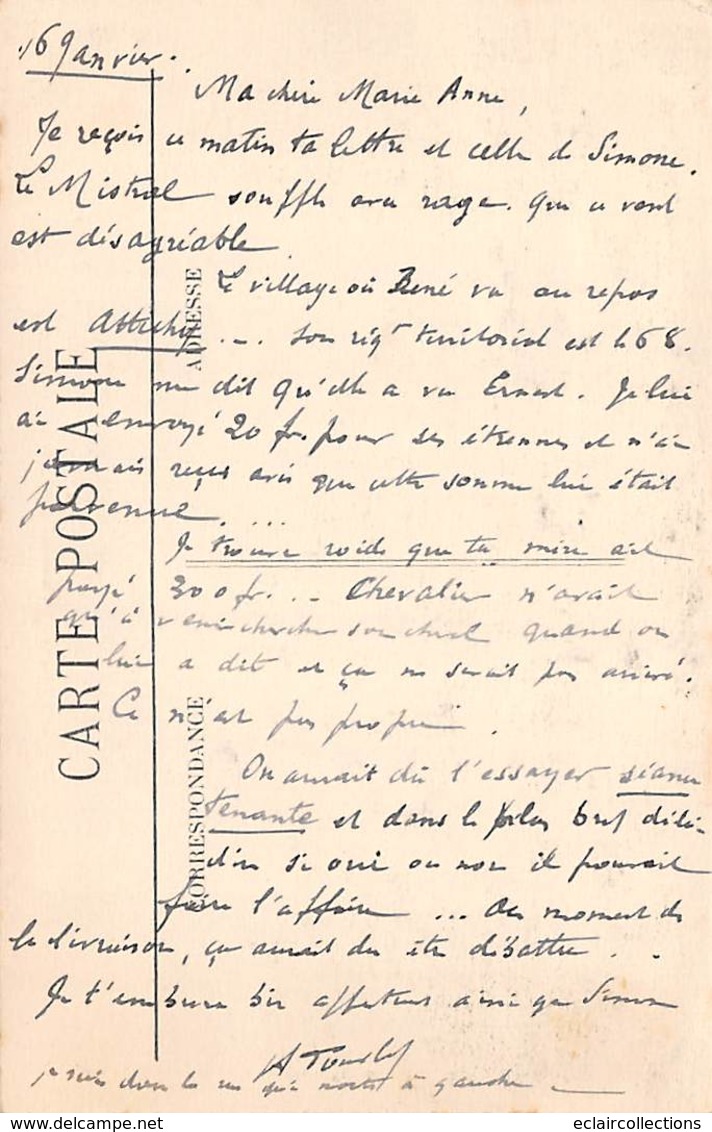 16 Janvier.
Ma chère Marie Anne,
Je reçois ce matin ta lettre et celle de Simone.
Le Mistral souffle avec rage. Que ce vent
est désagréable
Le village où René va au repos
est Attichy ... Son rigt territorial est le 68.
Simone me dit qu'elle a vu Ernest. Je lui
ai envoyé 20 fr. pour ses étrennes et n'ai
jamais reçu avis que cette somme lui était
parvenue ....
Je trouve roide que ta mère ait
payé 300 fr... Chevalier n'avait
qu'à venir chercher son cheval quand on
lui a dit et ça ne serait pas arrivé.
Ce n'est pas propre.
On aurait dû l'essayer séance
tenante et dans le plus bref délai
dire si oui ou non il pouvait
faire l'affaire ... Au moment de
la livraison, ça aurait du être débattu . .
Je t'embrasse bien affectueus ainsi que Simone
je suis dans la rue qui monte à gauche
CARTE POSTALE
CORRESPONDANCE
ADRESSE
eclaircollections